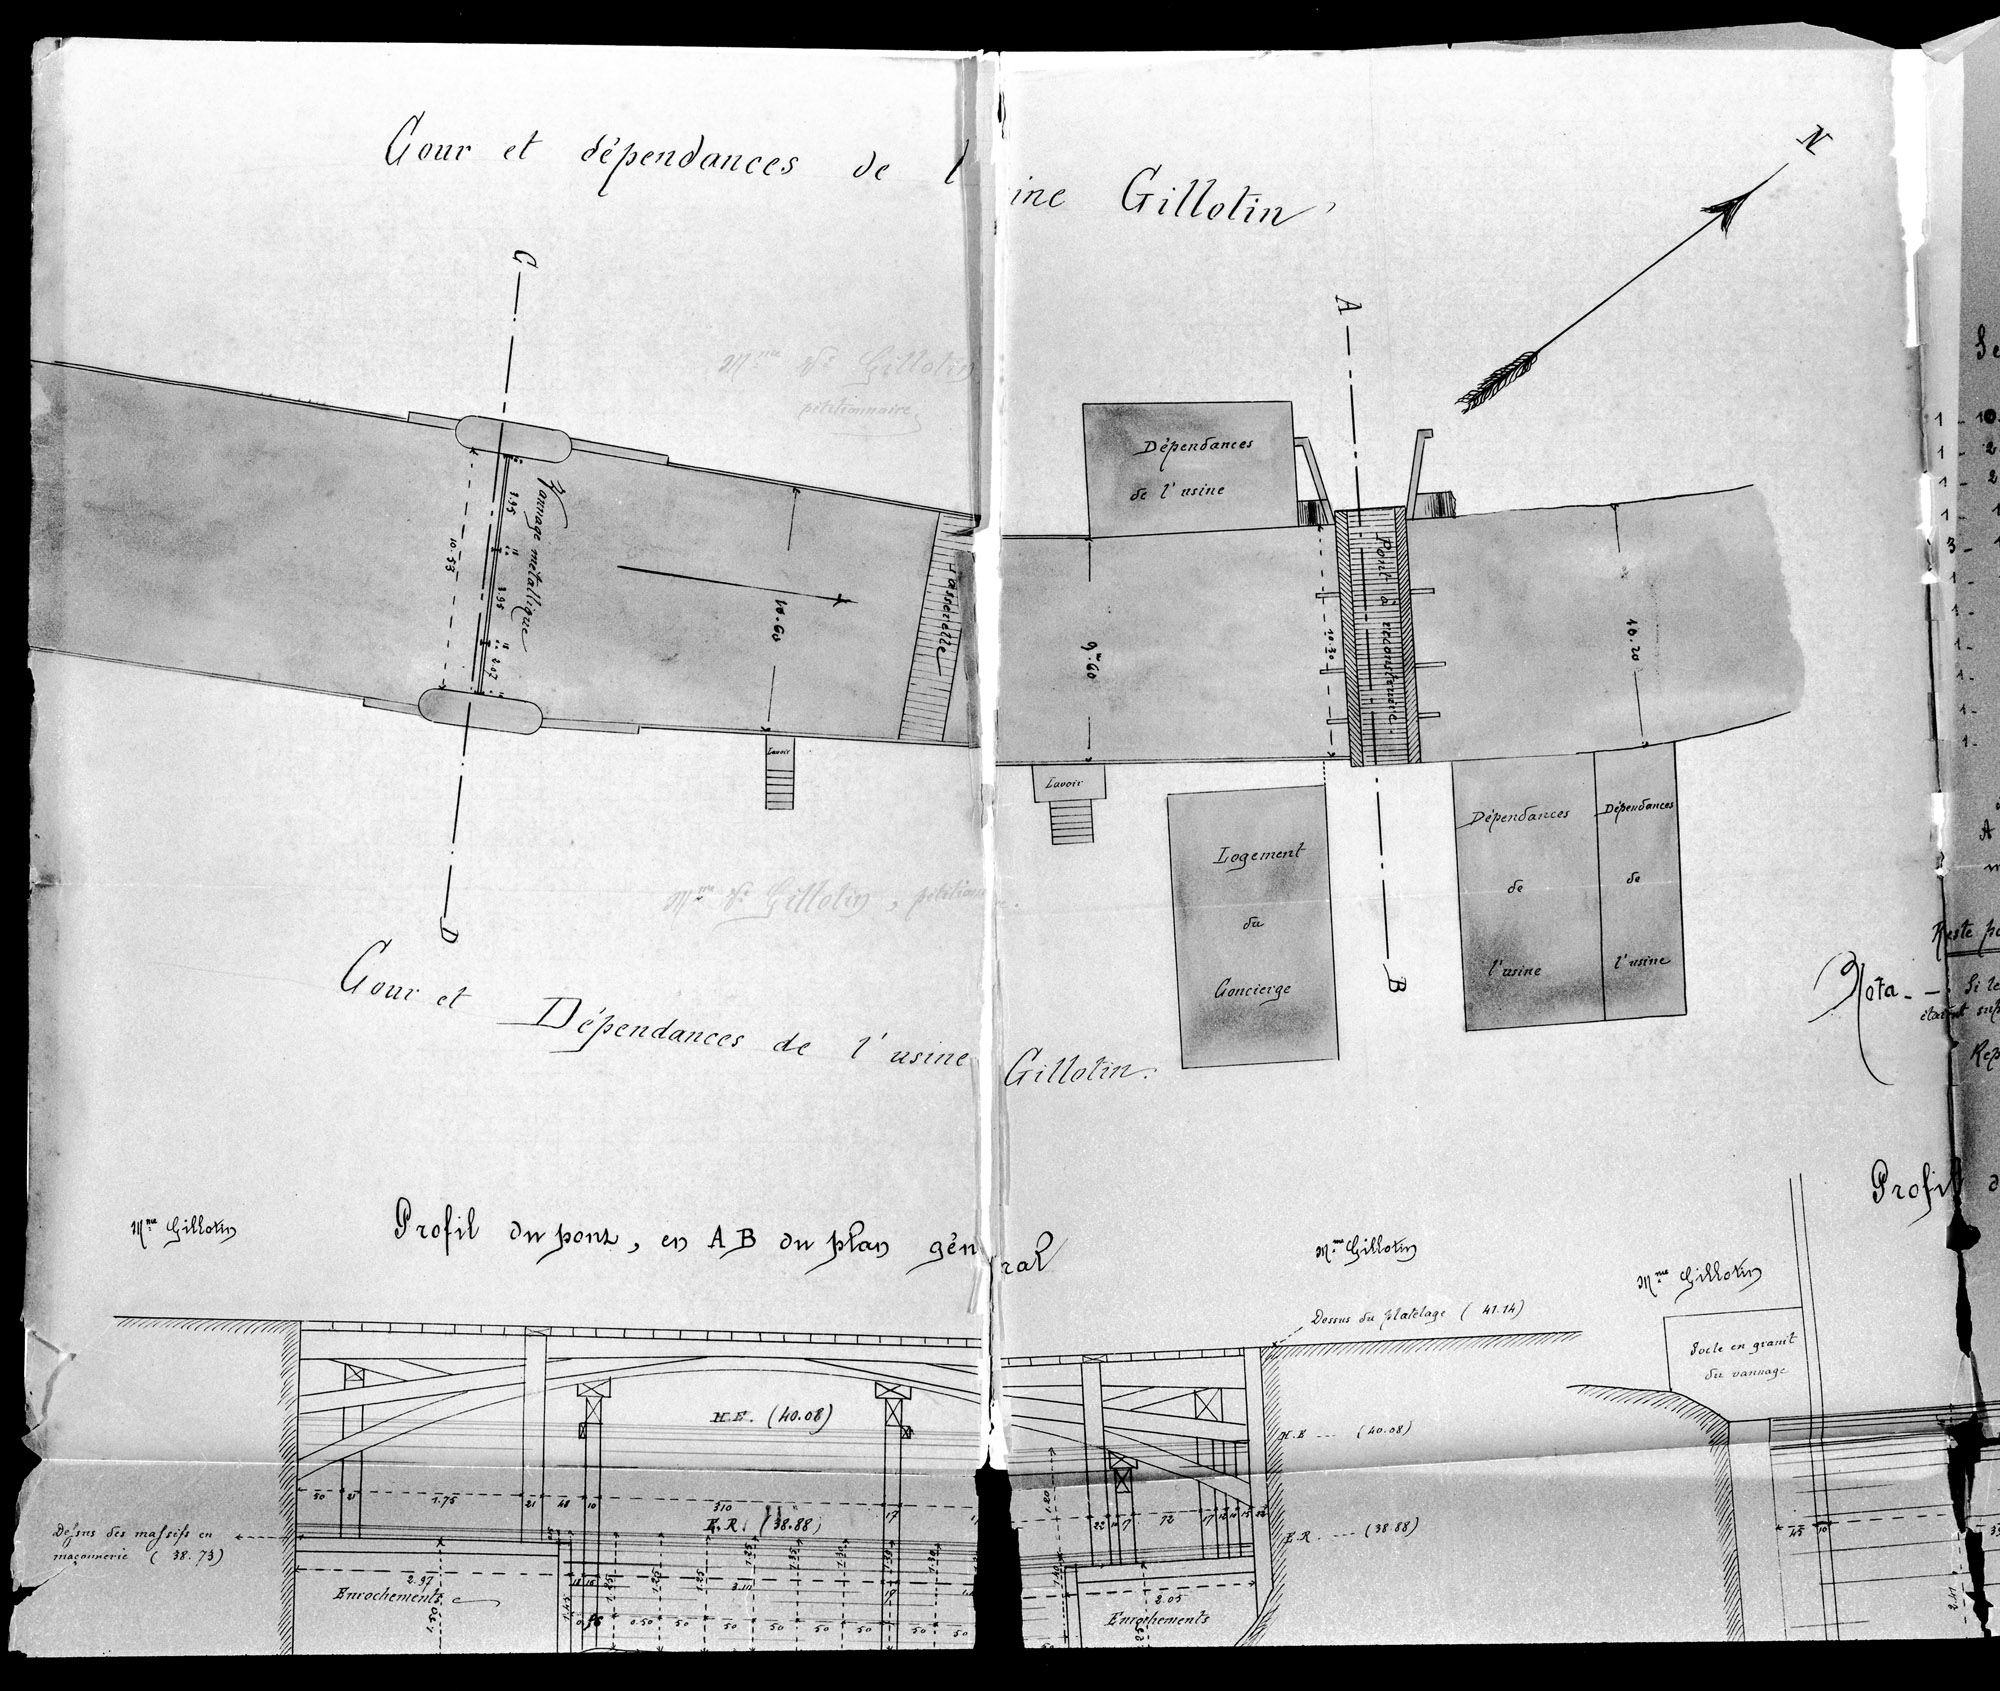 Cour et dépendances de l' ine Gillotin
N
C
A
Mme Ve Gillotin
pétitionnaire
Dépendances
de l'usine
Vannage métallique
3.95
3.95
2.07
10.53
10.60
Passerelle
9m60
10.30
Pont à reconstruire.
16.20
Lavoir
Lavoir
Logement
du
Concierge
Dépendances
de
l'usine
Dépendances
de
l'usine
Mme Ve Gillotin, pétition
D
B
Cour et Dépendances de l'usine Gillotin.
Nota.
Si le
Reste
Profil
Mme Gillotin
Profil du pont, en AB du plan gén ral
Mme Gillotin
Mme Gillotin
Dessus du platelage (41.14)
Socle en granit
du vannage
H.E. (40.08)
H.E --- (40.08)
50 21 1.75 21 48 10 310 17
22 7 72 17
E.R. (38.88)
E.R. --- (38.88)
Dessus des massifs en
maçonnerie (38.73)
2.97
Enrochements
2.05
Enrochements
0.50 50 50 50 50 50 50
45 10